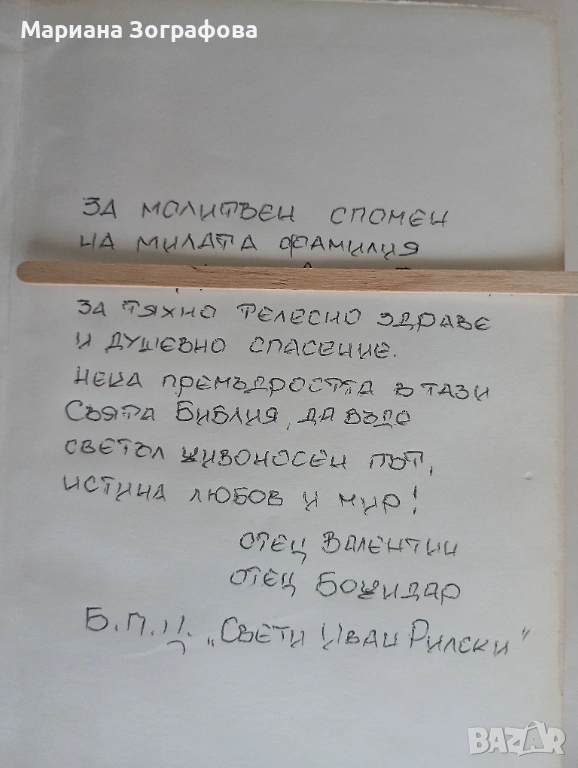 Мариана Зографова
ЗА МОЛИТВЕН СПОМЕН
НА МИЛАТА ФАМИЛИЯ
ЗА ТЯХНО ТЕЛЕСНО ЗДРАВЕ
И ДУШЕВНО СПАСЕНИЕ.
НЕКА ПРЕМЪДРОСТТА В ТАЗИ
СВЯТА БИБЛИЯ, ДА ВЪДЕ
СВЕТЪЛ ЖИВОНОСЕН ПЪТ,
ИСТИНА ЛЮБОВ И МИР!
ОТЕЦ ВАЛЕНТИН
ОТЕЦ БОЖИДАР
Б.П.Ц. „СВЕТИ ИВАН РИЛСКИ"
BAZAR